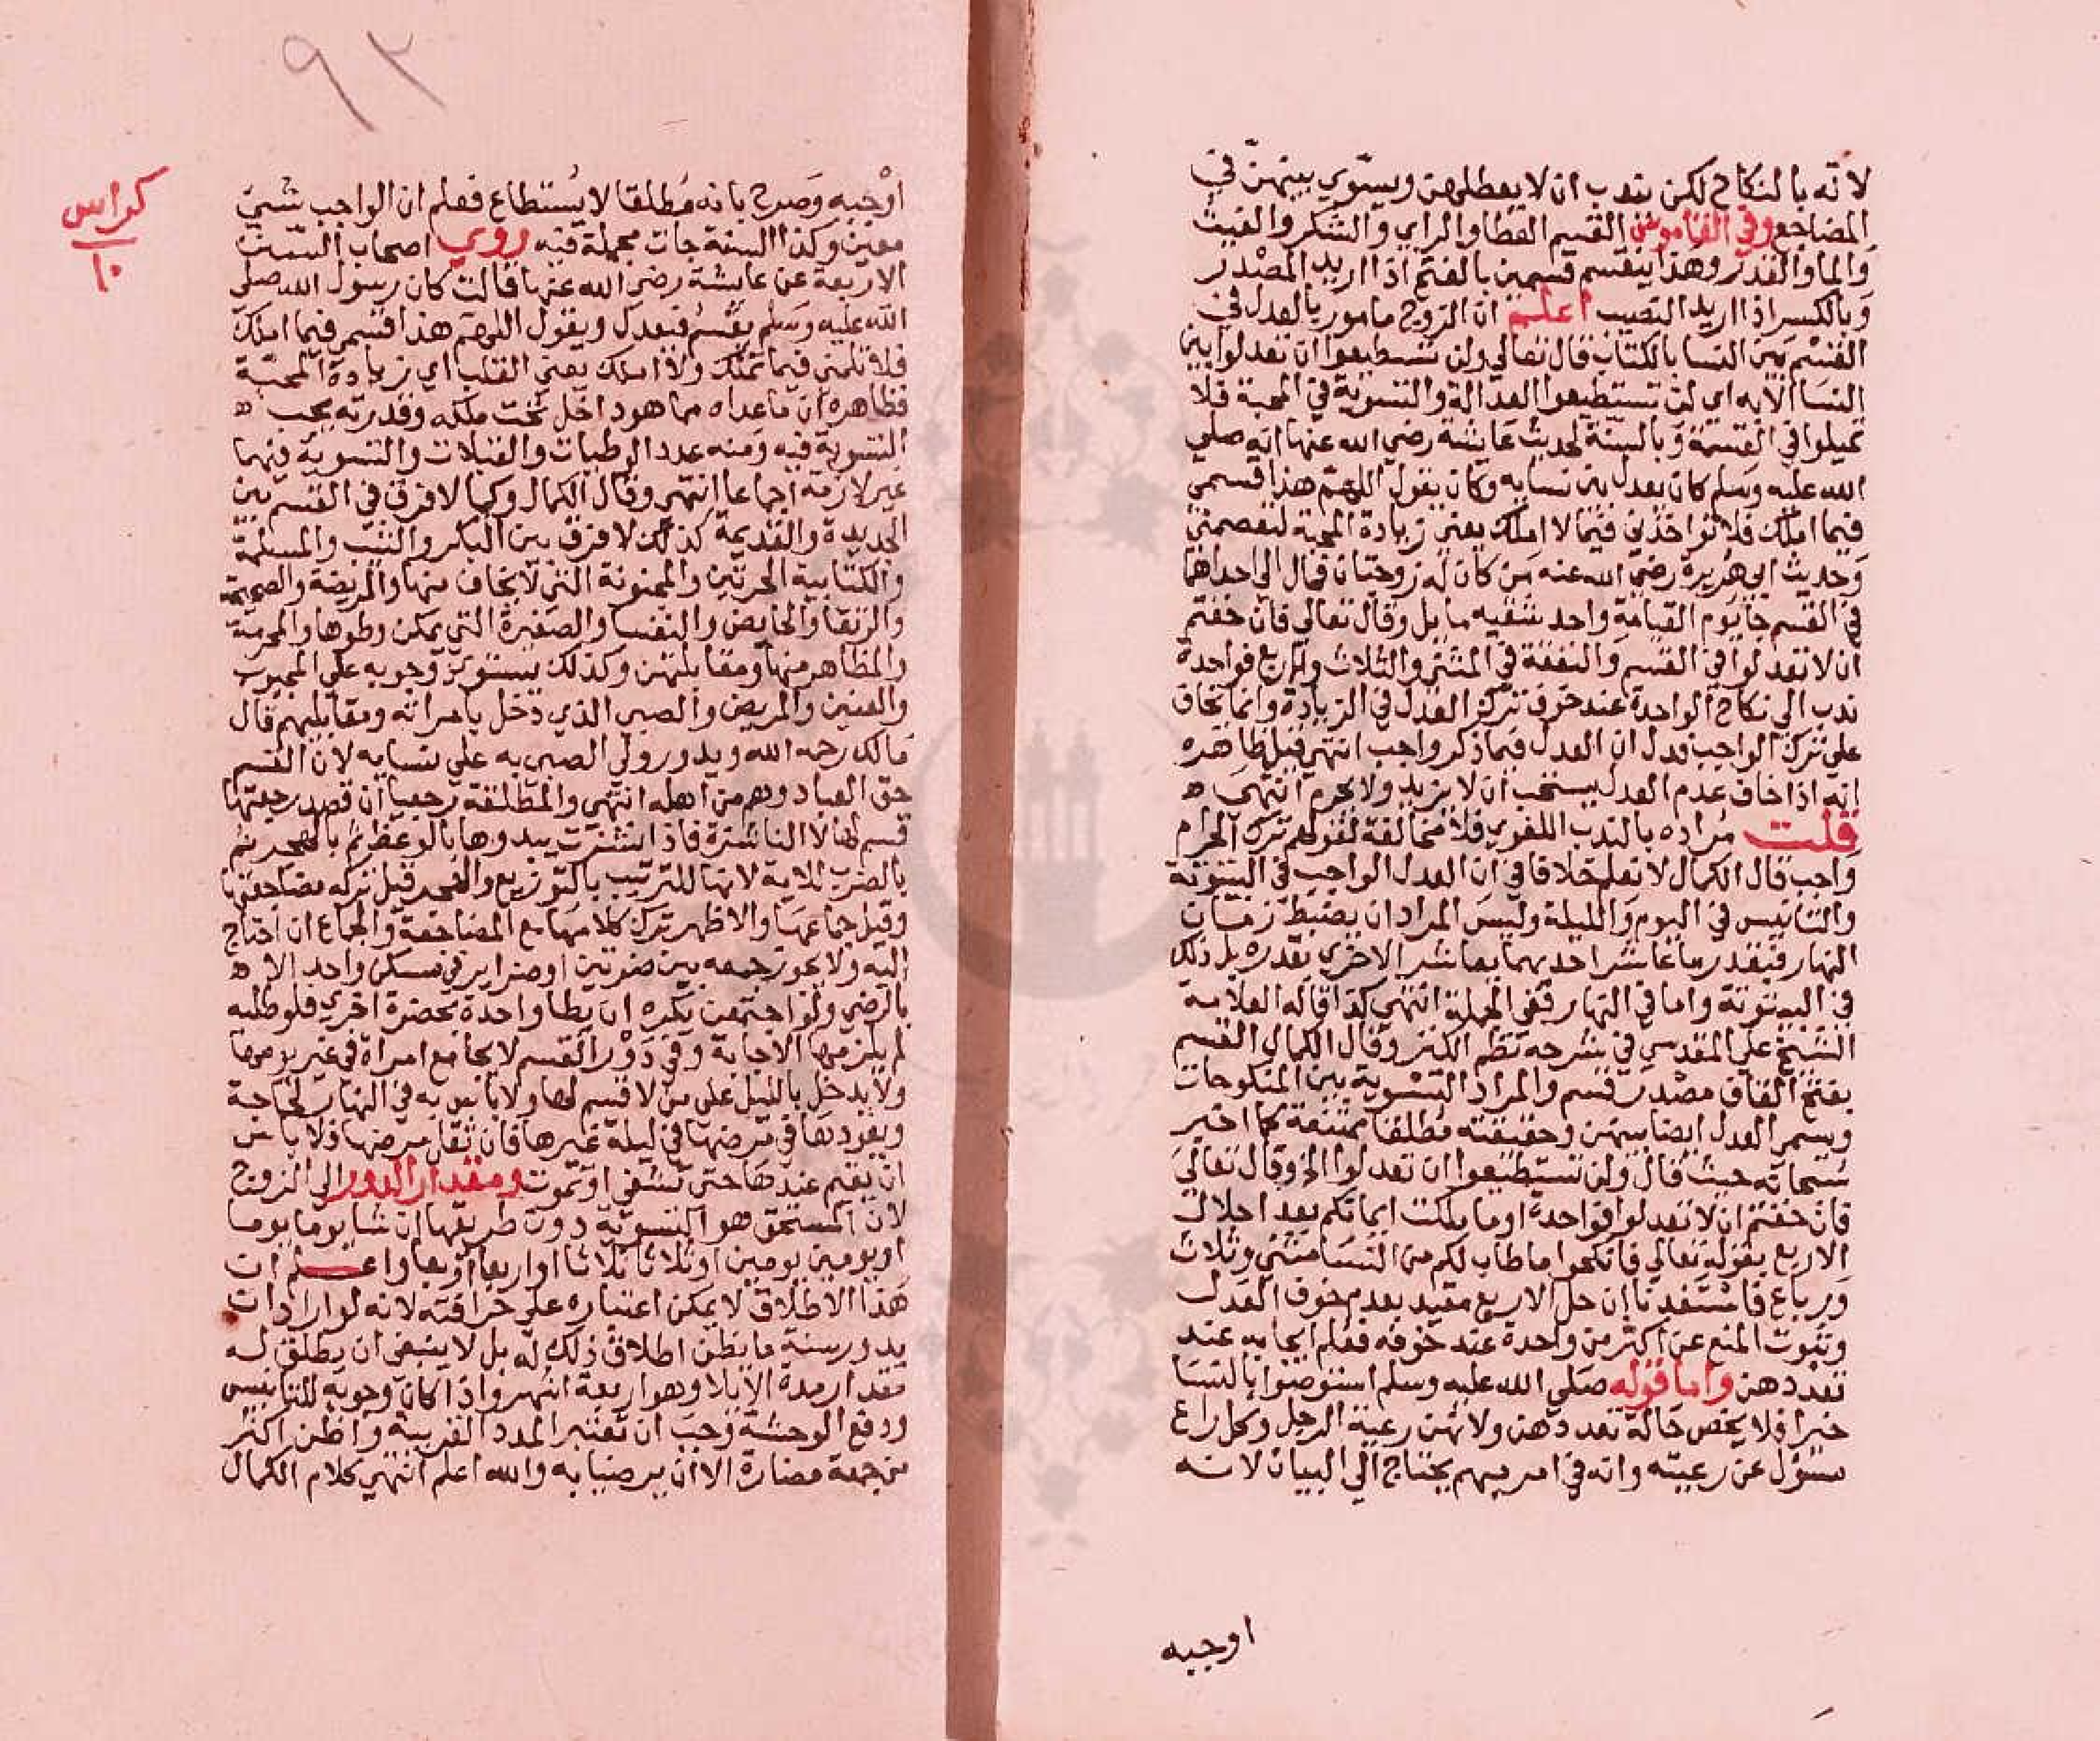 لانه بالنكاح لكن يندب ان لا يعطلهن ويسوي بينهن في
المضاجع وفي القاموس القسم العطا والراي والشك والغيث
والما والقدر وهذا ينقسم قسمين بالفتح اذا اريد المصدر
وبالكسر اذا اريد النصيب اعلم ان الزوج مامور بالعدل في
القسم بين النسا بالكتاب قال تعالي ولن تستطيعوا ان تعدلوا بين
النسا الايه اي لن تستطيعوا العدالة والتسوية في المحبة فلا
تميلوا في القسمة وبالسنة لحديث عايشة رضي الله عنها انه صلي
الله عليه وسلم كان يعدل بين نسايه وكان يقول اللهم هذا قسمي
فيما املك فلا تواخذني فيما لا املك يعني زيادة المحبة لبعضهن
وحديث ابي هريرة رضي الله عنه من كان له زوجتان فمال الي احداهما
في القسم جا يوم القيامة واحد شقيه مايل وقال تعالي فان خفتم
ان لا تعدلوا في القسم والنفقة في المثني والثلاث والرباع فواحدة
ندب الي نكاح الواحدة عند خوف ترك العدل في الزيادة وانما يخاف
علي ترك الواجب فدل ان العدل فيما ذكر واجب انتهي قيل ظاهره
انه اذا خاف عدم العدل يستحب ان لا يزيد ولا يحرم انتهي ه
قلت مراده بالندب اللغوي فلا مخالفة لقولهم ترك الحرام
واجب قال الكمال لا نعلم خلافا في ان العدل الواجب في البيتوتة
والتانيس في اليوم والليلة وليس المراد ان يضبط زمان
النهار فبقدر ما عاشر احديهما يعاشر الاخري بقدره بل ذلك
في البيتوتة واما في النهار ففي الجملة انتهي كذا قاله العلامة
الشيخ علي المقدسي في شرحه نظم الكنز وقال الكمال القسم
بفتح القاف مصدر قسم والمراد التسوية بين المنكوحات
ويسمي العدل ايضا بينهن وحقيقته مطلقا ممتنعة كما اخبر
سبحانه حيث قال ولن تستطيعوا ان تعدلوا الخ وقال تعالي
فان خفتم ان لا تعدلوا فواحدة اوما ملكت ايمانكم بعد احلال
الاربع بقوله تعالي فانكحوا ما طاب لكم من النسا مثني وثلاث
ورباع فاستفدنا ان حل الاربع مقيد بعدم خوف العدل
وثبوت المنع عن اكثر من واحدة عند خوفه فعلم ايجابه عند
تعددهن واما قوله صلي الله عليه وسلم استوصوا بالنسا
خيرا فلا يخص حالة تعددهن ولانهن رعية الرجل وكل راع
مسؤل عن رعيته وانه في امر مبهم يحتاج الي البيان لانه
اوجبه
٩٢
كراس
١٠
اوجبه وصرح بانه مطلقا لا يستطاع فعلم ان الواجب شيئ
معين وكذا السنة جات مجملة فيه روي اصحاب السنن
الاربعة عن عايشة رضي الله عنها قالت كان رسول الله صلي
الله عليه وسلم يقسم فيعدل ويقول اللهم هذا قسمي فيما املك
فلا تلمني فيما تملك ولا املك يعني القلب اي زيادة المحبة
فظاهره ان ماعداه مما هو داخل تحت ملكه وقدرته يجب ه
التسوية فيه ومنه عدد الوطيات والقبلات والتسوية فيهما
غير لازمة اجماعا انتهي وقال الكمال وكما لا فرق في القسم بين
الجديدة والقديمة كذلك لا فرق بين البكر والثيب والمسلمة
والكتابية الحرتين والمجنونة التي لا يخاف منها والمريضة والصحيحة
والرتقا والحايض والنفسا والصغيرة التي يمكن وطوها والمحرمة
والمظاهر منها ومقابلتهن وكذلك يستوي وجوبه علي المجبوب
والعنين والمريض والصبي الذي دخل بامراته ومقابليهم قال
مالك رحمه الله ويدور ولي الصبي به علي نسايه لان القسم
حق العباد وهم من اهله انتهي والمطلقة رجعيا ان قصد رجعتها
قسم لها لا الناشزة فاذا نشزت يبدوها بالوعظ ثم بالهجر ثم
بالضرب للاية لانها للترتيب بالتوزيع والهجر قيل تركه مضاجعتها
وقيل جماعها والاظهر ترك كلامها مع المضاجعة والجماع ان احتاج
اليه ولا يجوز جمعه بين ضرتين او ضراير في مسكن واحد الا ه
بالرضي ولو اجتمعن يكره ان يطا واحدة بحضرة اخري فلو طلبه
لم يلزمها الاجابة وفي دور القسم لا يجامع امراة في غير يومها
ولا يدخل بالليل علي من لا قسم لها ولا باس به في النهار لحاجة
ويعودها في مرضها في ليلة غيرها فان ثقل مرضها فلا باس
ان يقيم عندها حتي تشفي او تموت ومقدار الدور الي الزوج
لان المستحق هو التسوية دون طريقها ان شا يوما يوما
او يومين يومين او ثلاثا ثلاثا او اربعا اربعا واعلم ان
هذا الاطلاق لا يمكن اعتباره علي صرافته لانه لو اراد ان
يدور سنة ما يظن اطلاق ذلك له بل لا ينبغي ان يطلق له
مقدار مدة الايلا وهو اربعة اشهر واذا كان وجوبه للتانيس
ودفع الوحشة وجب ان تعتبر المدد القريبة واظن اكثر
من جمعة مضارة الا ان يرضيا به والله اعلم انتهي كلام الكمال